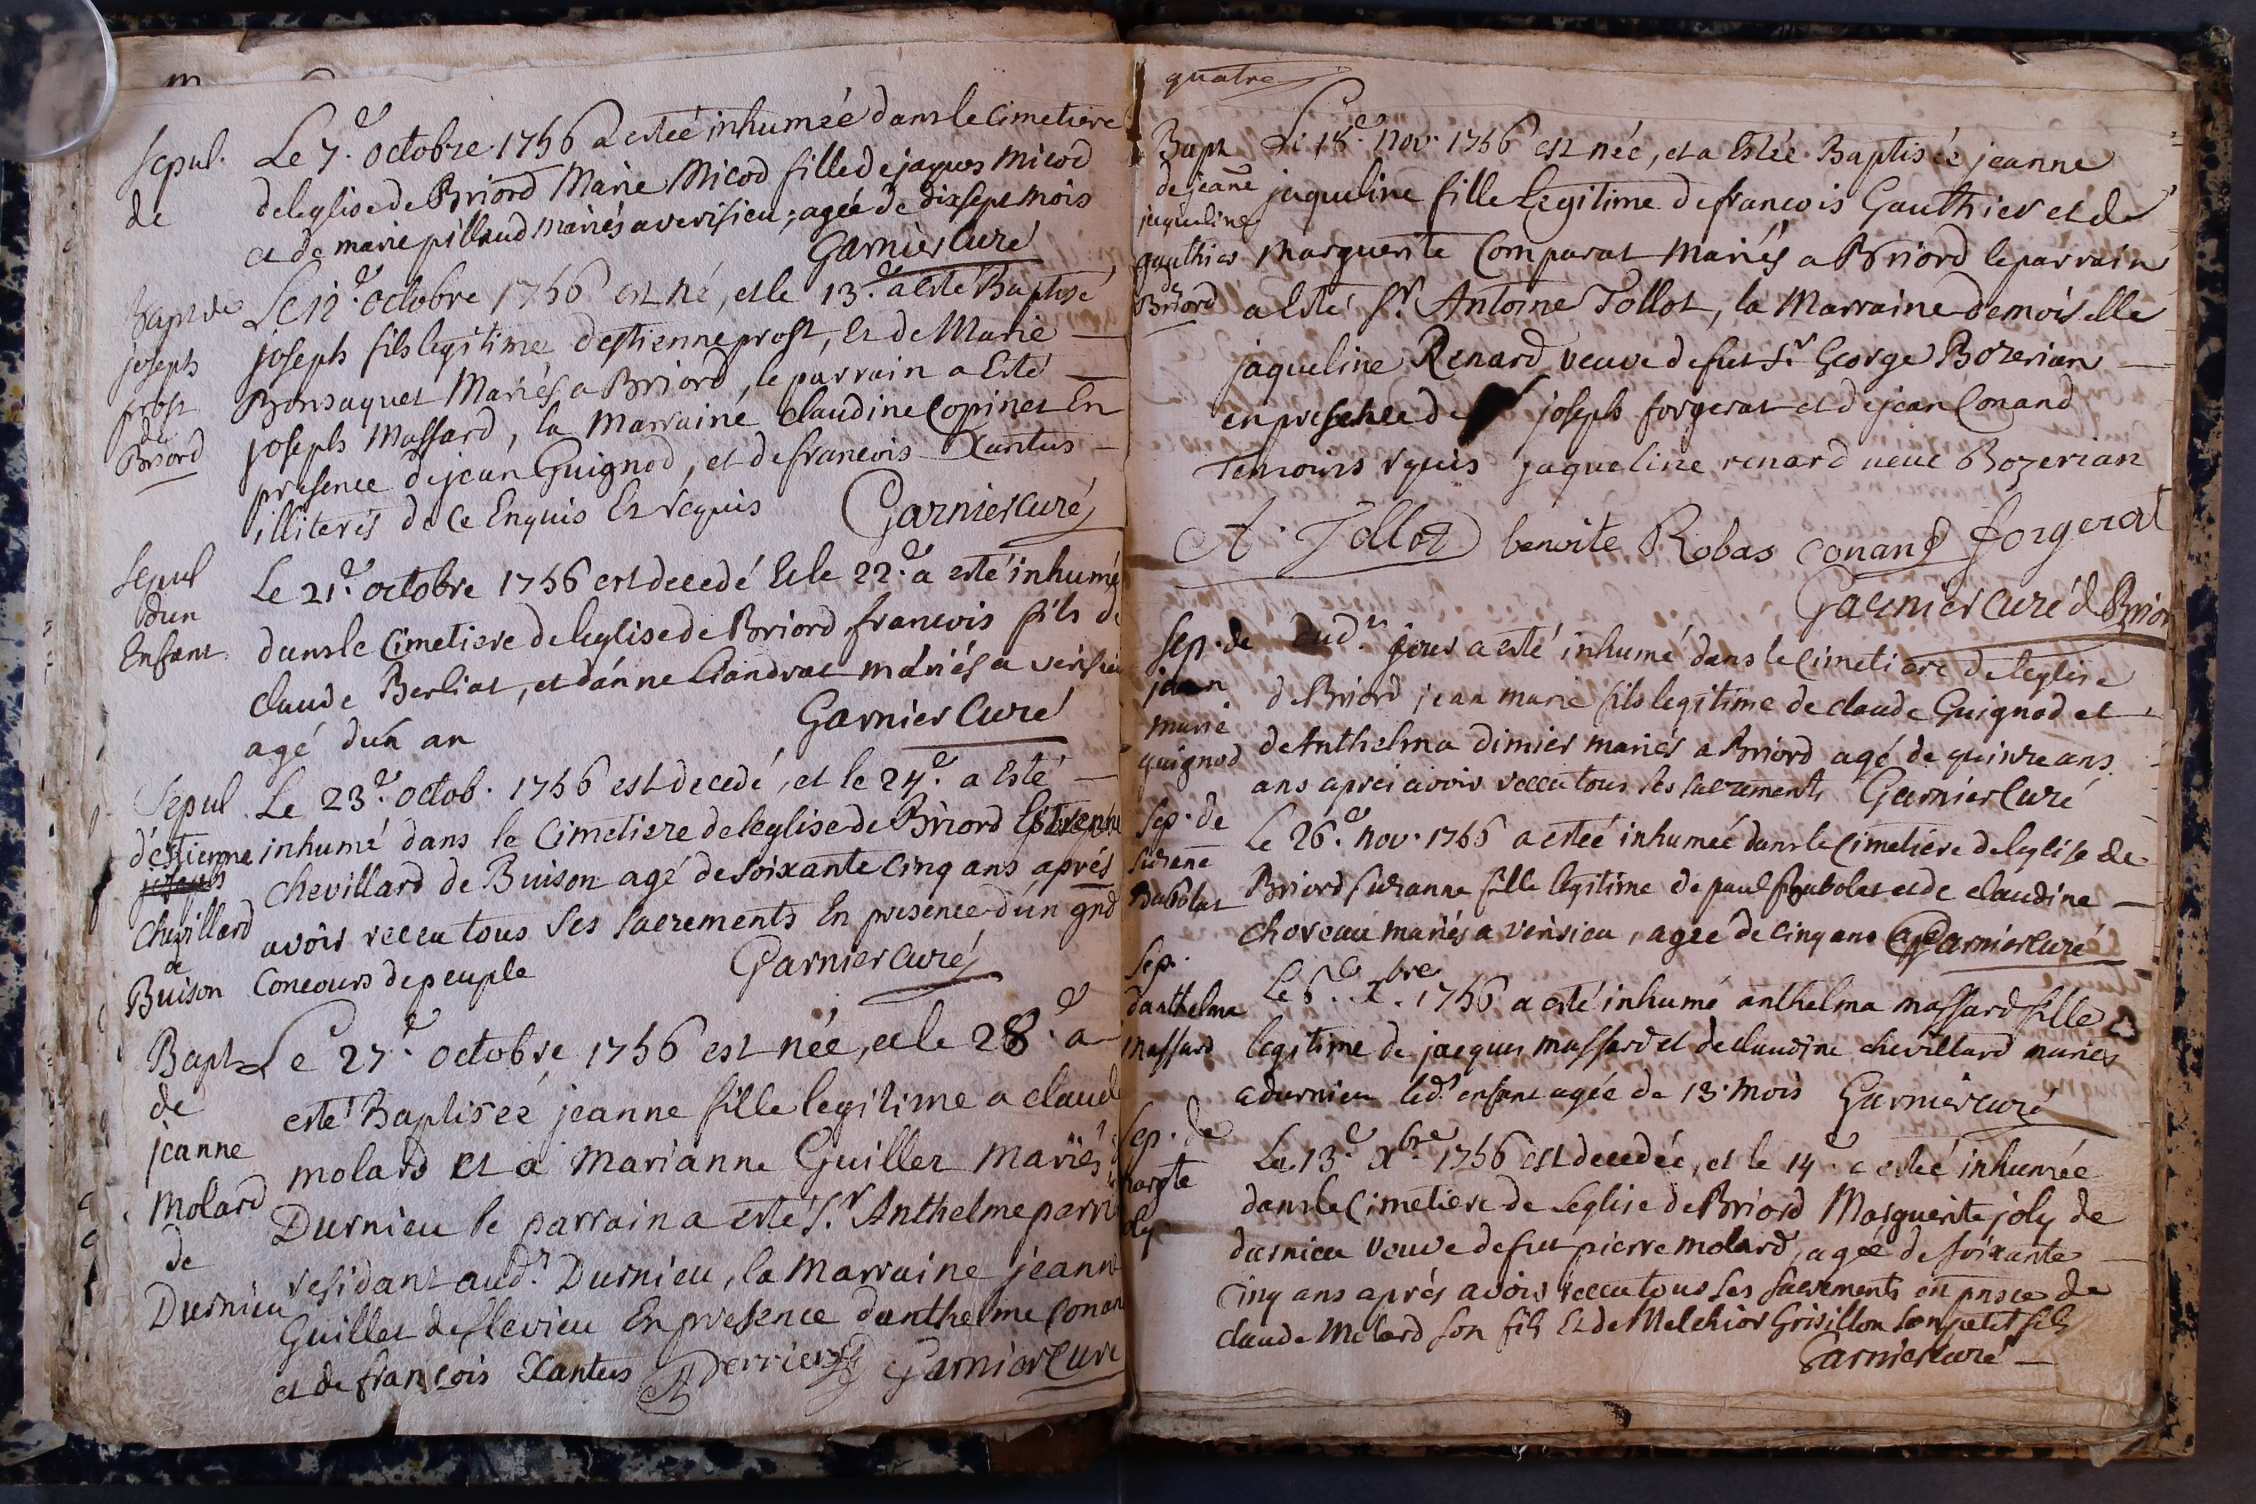 Sepul.
de
Le 7.e octobre 1756 a estée inhumée dans le Cimetiere
de leglise de Briord Marie Micod fille de jaques Micod
et de marie pillaud mariés a verisieu, agée de dixsept mois
Garnier Curé
Bapt de
joseph
prost
de
Briord
Le 12.e octobre 1756 est né, et le 13.e a esté Baptisé
joseph fils legitime destienne prost, Et de Marie
Bonsaquet Mariés a Briord, le parrain a Esté
joseph Massard, la Marraine claudine Copinet En
presence de jean Guignod, et de francois Xantus
illiterés de ce Enquis Et requis Garnier curé
Sepul
dun
Enfant
Le 21.e octobre 1756 est decedé Et le 22.e a esté inhumé
dans le Cimetiere de leglise de Briord francois fils de
claude Berliat, et dánne Giandrat mariés a verisieu
agé dun an
Garnier Curé
Sepul
déstienne
Chevillard
de
Buison
Le 23.e octob. 1756 est decedé, et le 24.e a Esté
inhumé dans le Cimetiere de leglise de Briord Estienne
Chevillard de Buison agé de soixante Cinq ans aprés
avoir receu tous ses sacrements En presence dún gnd
Concours de peuple
Garnier curé
Bapt
de
jeanne
Molard
de
Durnieu
Le 27.e octobre 1756 est née, et le 28.e a
esté Baptisée jeanne fille legitime a claude
molard et a Marianne Guillet Mariés
Durnieu le parrain a esté S.r Anthelme perri
residant aud.t Durnieu, la Marraine jeanne
Guillet de flevieu En presence danthelme Conan
et de françois Xantus Perrier Garnier Curé
quatre
Bapt
de jeane
jaqueline
gauthier
de
Briord
Le 18.e nov. 1756 est née, et a Estée Baptisée jeanne
jaqueline fille Legitime de francois Gauthier et de
Marguerite Comparat Mariés a Briord le parrain
a Esté S.r Antoine Tollot, la Marraine demoiselle
jaqueline Renard veuve de fut S.r George Bozerian
en presence de joseph forgerat et de jean Conand
Temoins requis jaqueline renard veue Bozerian
A. Tollot benoite Robas conand forgerat
Garnier curé d Brior
Sep. de
jean
marie
guignod
dud.t jour a esté inhumé dans le Cimetiere de leglise
de Briord jean marie fils legitime de claude Guignod et
de Anthelma dimier mariés a Briord agé de quinze ans
ans aprés avoir receu tous ses sacrements Garnier Curé
Sep. de
suzane
Babolat
Le 26.e nov. 1756 a estéé inhumeé dans le Cimetiére de leglise de
Briord suzanne fille legitime de paul Babolat et de claudine
choveau mariés a verisieu, agée de Cinq ans Garnier curé
Sep.
danthelma
massard
Le 6.e x.bre 1756 a esté inhumé anthelma massard fille
legitime de jacques massard et de claudine chevillard mariés
a durnieu led.t enfant agée de 13. mois Garnier curé
Sep. de
margte
oly
Le 13.e x.bre 1756 est decedée, et le 14.e a esteé inhumée
dans le Cimetiere de Leglise de Briord Marguerite joly de
durnieu veuve de fut pierre molard, agée de soixante
Cinq ans aprés avoir receu tous ses sacrements en pnsce de
claude Molard son fils Et de Melchior Grisillon son petit fils
Garnier curé